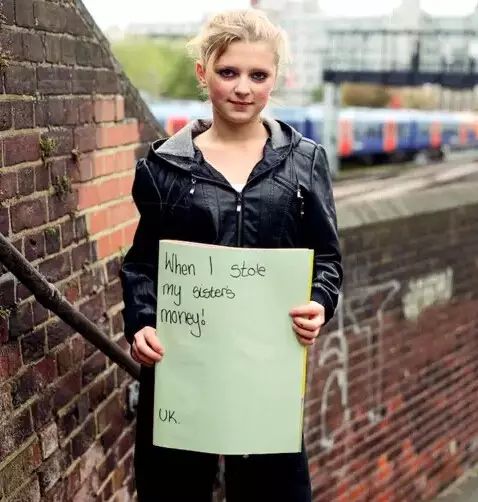 When I stole
my sister's
money!
UK.